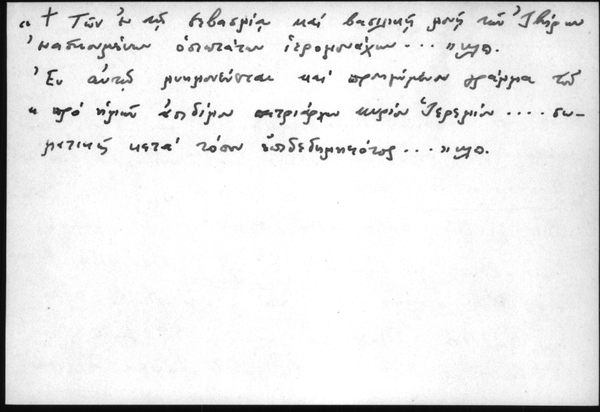 « † Τῶν ἐν τῇ σεβασμίᾳ καὶ βασιλικῇ μονῇ τῶν Ἰβήρων
ἐνασκουμένων ὁσιωτάτων ἱερομονάχων . . . » κλπ.
Ἐν αὐτῷ μνημονεύεται καὶ προηγούμενον γράμμα τοῦ
« πρὸ ἡμῶν ἀοιδίμου πατριάρχου κυρίου Ἱερεμίου . . . . σω-
ματικῶς κατὰ τόπον ἐπιδεδημηκότος . . . » κλπ.